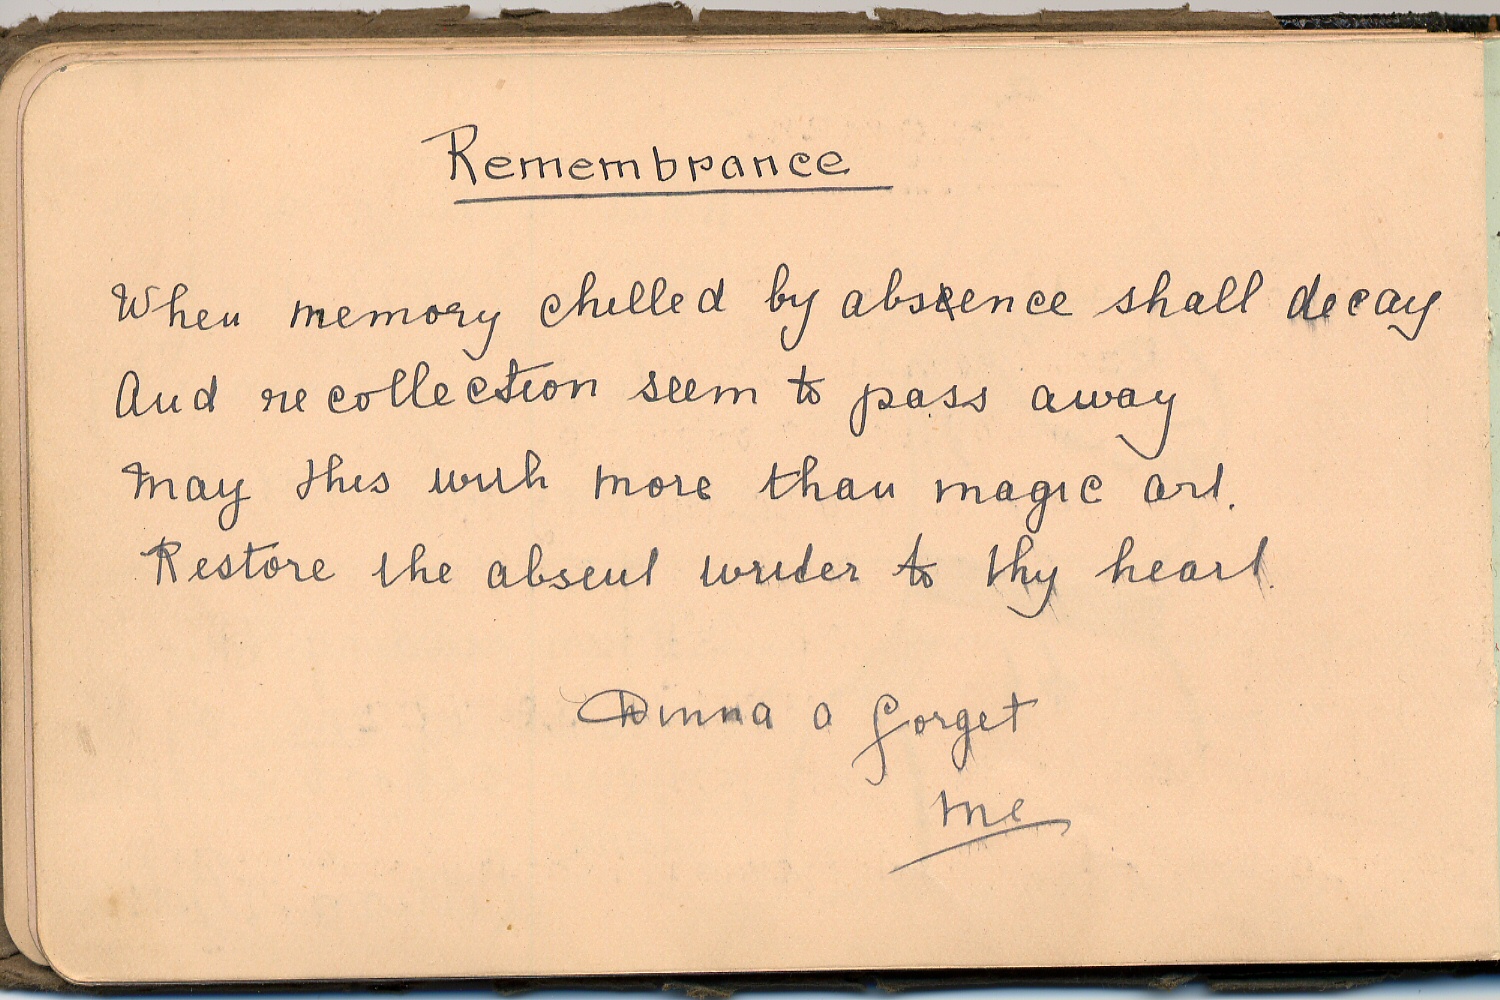 Remembrance
When memory chilled by absence shall decay
And recollection seem to pass away
May this with more than magic art.
Restore the absent writer to thy heart.
Dinna a forget
me